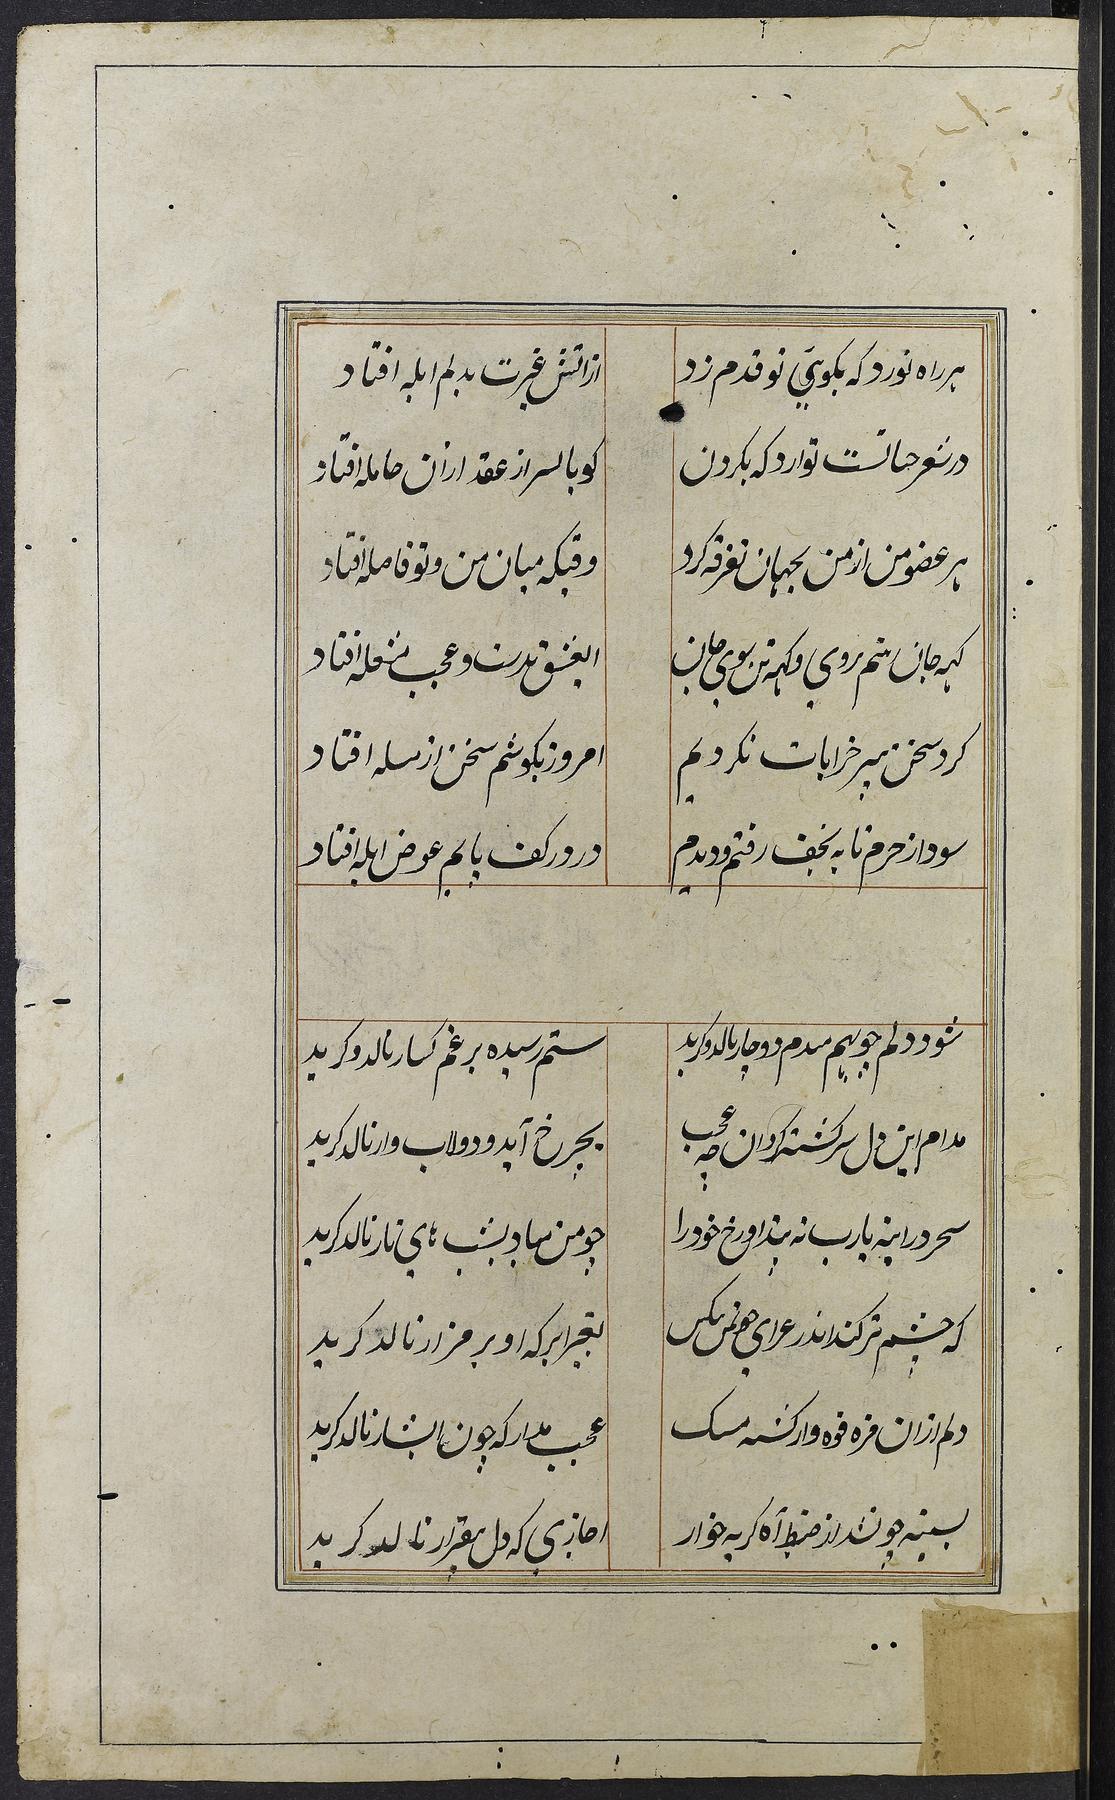 هر راه نورد که بکوئي تو قدم زد
ازاتش غیرت بدلم ابله افتاد
در شعر حیا تست توارد که بکردن
کو بالسر از عقد ازان حامله افتاد
هر عضو من از من بجهان تفرقه کرد
وقتیکه میان من وتو فاصله افتاد
کهه جان بتم بروي وکهه تن بوي جان
ایعشق بدرست و عجب مشغله افتاد
کرد سخن پیر خرابات نکردیم
امروز بکوشم سخن از مسله افتاد
سودا ز حرم تا به نجف رفتم ودیدم
در در کف پایم عوض ابله افتاد
شود دلم چو بهم مدم دوچار نالد وکرید
ستم رسیده بر غم کسار نالد و کرید
مدام این دل سرکشته کردان چه عجب
بچرخ آید و دولاب وار نالد کرید
سحر در اینه یارب نه بیند او رخ خود را
چو من مباد بشب هاي تار نالد کرید
که چشم تر کند اندر عزاي چو من بکس
بغیر ابر که او بر مزار نالد کرید
دلم ازان مزه فوه وار کشته
عجب مدار که چون ابشار نالد کرید
بسینه چون شد از ضبط آه کریه خوار
اجازي که دل بیقرار نالد کرید